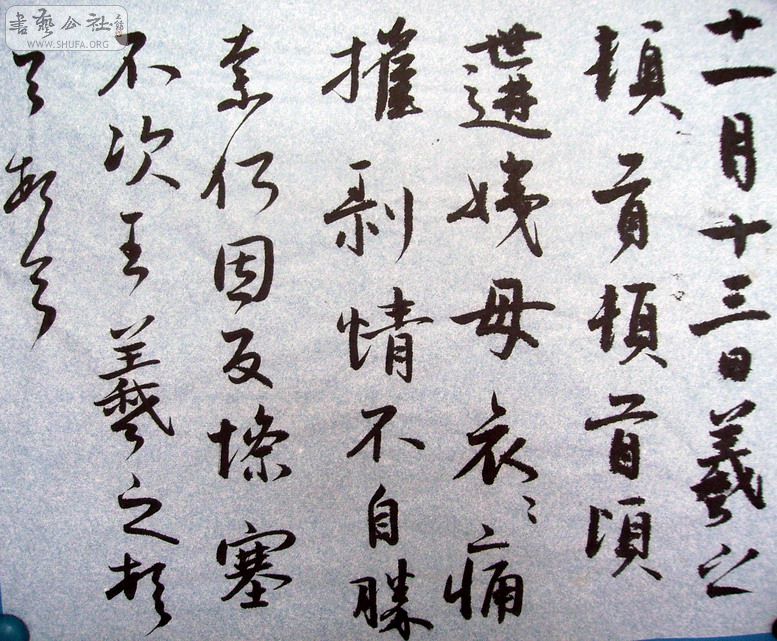 十一月十三日羲之
頓首頓首頃
遘姨母哀〻痛
摧剝情不自勝
奈何因反慘塞
不次王羲之頓
首頓首
書藝公社
WWW.SHUFA.ORG